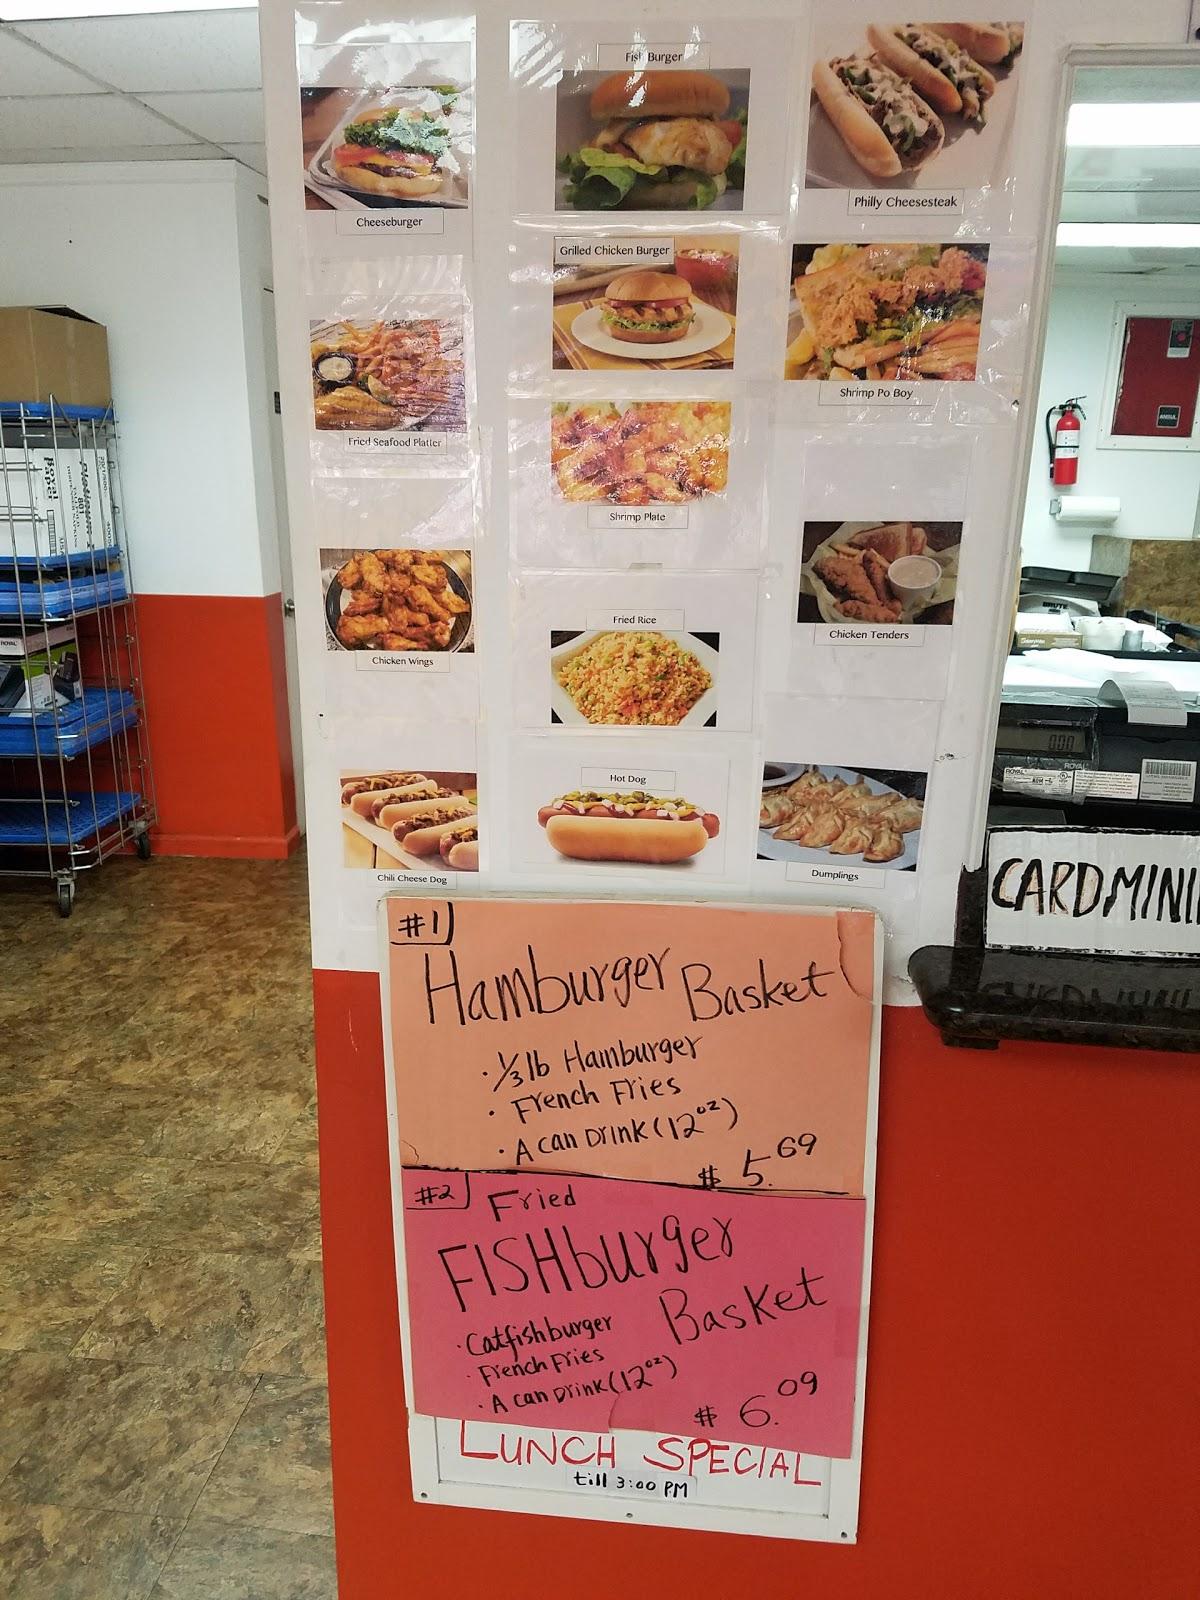 Cheeseburger
Fish Burger
Philly Cheesesteak
Grilled Chicken Burger
Fried Seafood Platter
Shrimp Plate
Shrimp Po Boy
Chicken Wings
Fried Rice
Chicken Tenders
Chili Cheese Dog
Hot Dog
Dumplings
#1
Hamburger Basket
· 1/3 lb Hamburger
· French Fries
· A can Drink (12oz)
$ 5.69
#2
Fried
FISHburger
Basket
· Catfishburger
· French Fries
· A can Drink (12oz)
$ 6.09
LUNCH SPECIAL
till 3:00 PM
CARD MINI
Royal
Paper
801
ROYAL
BRUTE
0.00
ROYAL
ANSUL